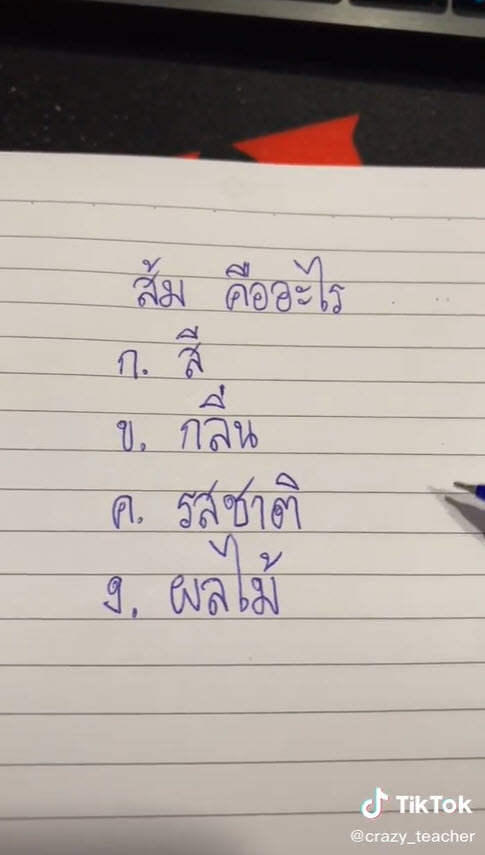 ส้ม คืออะไร
ก. สี
ข. กลิ่น
ค. รสชาติ
ง. ผลไม้
TikTok
@crazy_teacher